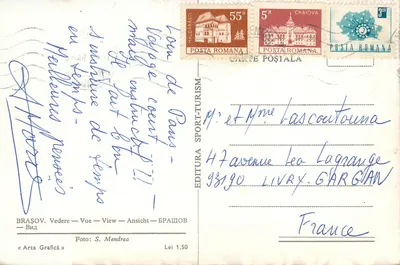 Loin de Paris -
Voyage court
mais instructif!!
Il fait bon
s'instruire de temps
en temps -
Meilleures pensées
BRAȘOV. Vedere — Vue — View — Ansicht — БРАШОВ
— Вид
Foto: S. Mendrea
« Arta Grafică »
Lei 1.50
EDITURA SPORT-TURISM
55B
POSTA ROMANA
5B
CRAIOVA
POSTA ROMANA
POSTA ROMANA
CARTE POȘTALA
Mr et Mme Lascoutouna
47 avenue Leo Lagrange
93190 LIVRY-GARGAN
France